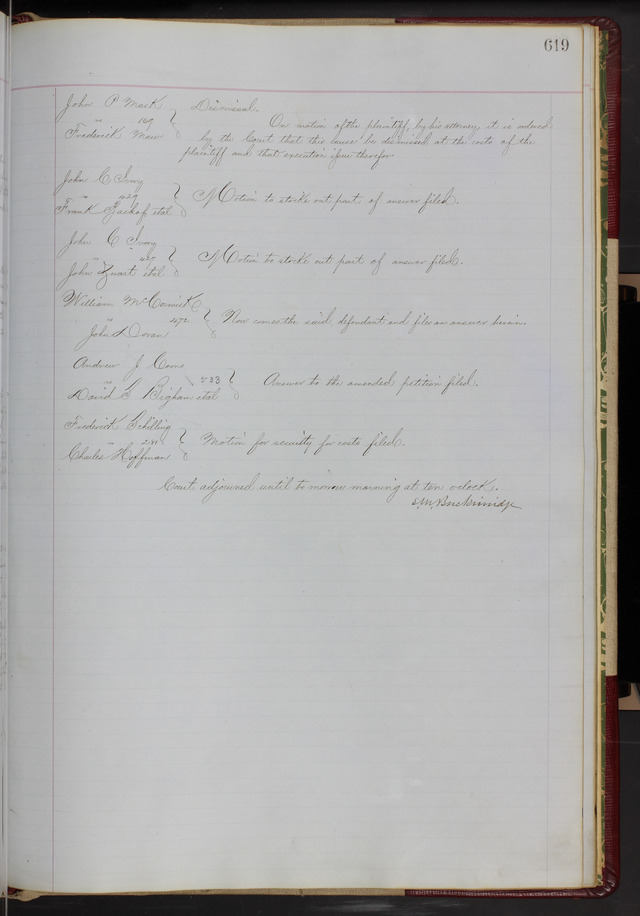 619
John P Mack
Dismissal.
" 169
Frederick
On motion of the plaintiff, by his attorney, it is ordered
by the Court that this cause be dismissed at the costs of the
plaintiff and that execution issue therefor
John C Ivory
" 429
Motion to strike out part of answer filed.
Frank etal
John C Ivory
"
Motion to strike out part of answer filed.
John etal
William McCormick
" 472
Now comes the said defendant and files an answer herein.
John Doran
Andrew J
" 533
Answer to the amended petition filed.
David G Bigham etal
Frederick Schilling
"
Motion for security for costs filed.
Charles Hoffman
Court adjourned until to morrow morning at ten oclock.
S.M. Breckinridge